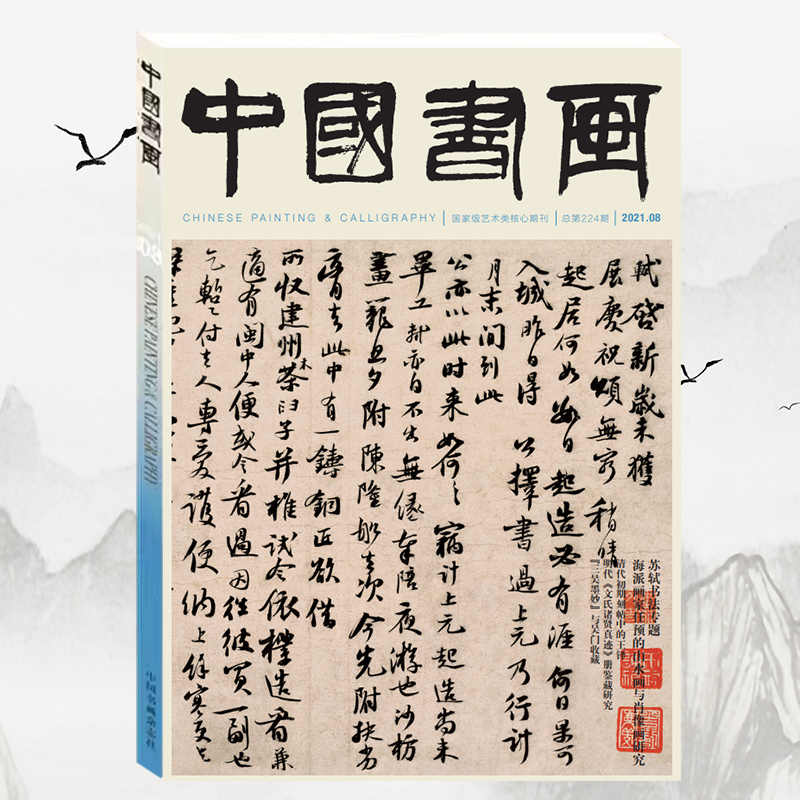 中國書画
CHINESE PAINTING & CALLIGRAPHY
国家级艺术类核心期刊
总第224期
2021.08
軾啓新歲未獲
展慶祝頌無窮稍晴
起居何如數日起造必有涯何日果可
入城昨日得公擇書過上元乃行計
月末間到此
公亦以此時來如何〻竊計上元起造尚未
畢工軾亦自不出無緣奉陪夜游也沙枋
畫籠旦夕附陳隆船去次今先附扶劣
膏去此中有一鑄銅匠欲借
所收建州木茶臼子并椎試令依樣造看兼
適有閩中人便或令看過因往彼買一副也
乞蹔付去人專愛護便納上餘寒更乞
苏轼书法专题
海派画家任预的山水画与肖像画研究
清代初期刻帖中的王铎
明代《文氏诸贤真迹》册鉴藏研究
『三吴墨妙』与吴门收藏
中國書画
08
CHINESE PAINTING & CALLIGRAPHY
中国书画杂志社